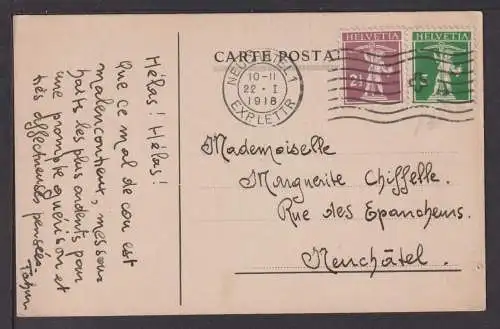 CARTE POSTA
HELVETIA
HELVETIA
2½
5
NEUCHÂTEL 1
10-11
22 · I
1918
EXP. LETTR.
Hélas! Hélas!
Que ce mal de cou est
malencontreux, mes
les plus ardents pour
une prompte guérison et
très affectueuses pensées
Mademoiselle
Marguerite Chiffelle.
Rue des Epancheurs.
Neuchâtel